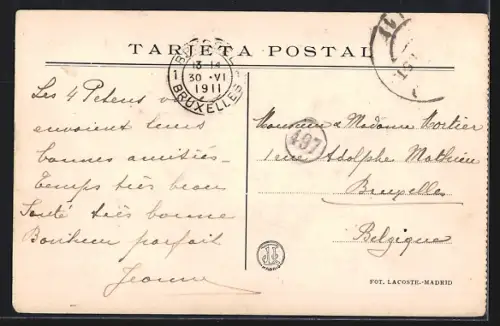 TARJETA POSTAL
BRUXELLES
13-14
30 VI
1911
1 BRUXELLES
Les 4 Peteus v
envoient leurs
bonnes amitiés -
Temps très beau
Santé très bonne
Bonheur parfait
Jeanne
497
Monsieur & Madame Mortier
1 rue Adolphe Mathieu
Bruxelles
Belgique
FOT. LACOSTE.-MADRID